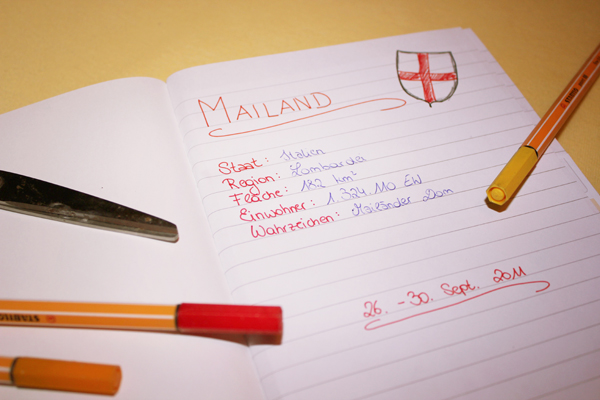 MAILAND
Staat: Italien
Region: Lombardei
Fläche: 182 km²
Einwohner: 1.324.110 EW
Wahrzeichen: Mailänder Dom
26. - 30. Sept. 2011
STABILO